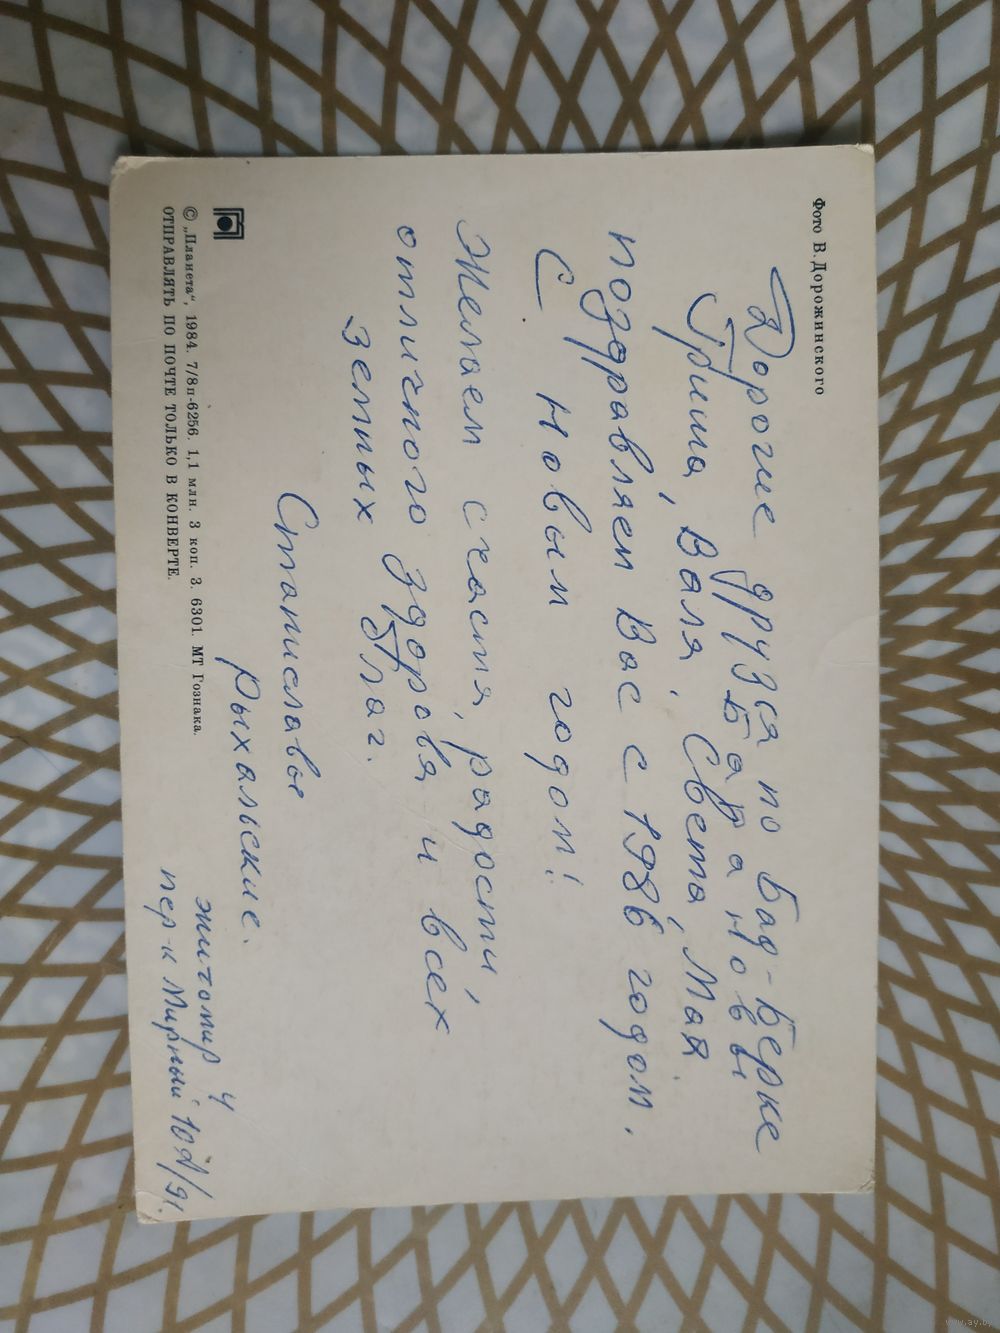 Фото В. Дорожинского
Дорогие друзья по Бад-Берке
Барановы
Гриша, Валя, Света, Мая
поздравляем Вас с 1986 годом.
С Новым годом!
Желаем счастья, радости,
отличного здоровья и всех
земных благ.
Станиславы
Рыхальские.
житомир 4
пер-к Мирный 10
© „Планета“, 1984. 7/8п-6256. 1,1 млн. 3 коп. З. 6301. МТ Гознака.
ОТПРАВЛЯТЬ ПО ПОЧТЕ ТОЛЬКО В КОНВЕРТЕ.
www.ay.by